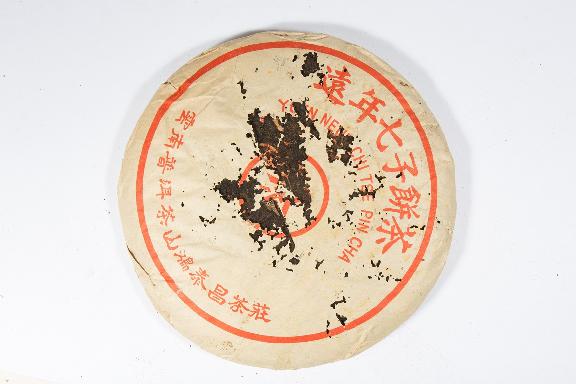 遠年七子餅茶
NEN CHI TSE PIN CHA
雲南普洱茶山鴻泰昌茶莊